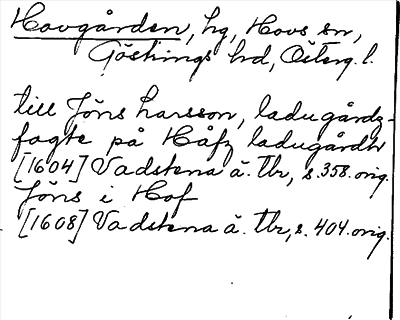 Hovgården, hg, Hovs sn,
Göstrings hd, Österg. l.
till Jöns Larsson, ladugårdz-
fogte på Håfz ladugårdh
[1604] Vadstena ä. Tbr, s. 358. orig.
Jöns i Hof
[1608] Vadstena ä. Tbr, s. 404. orig.